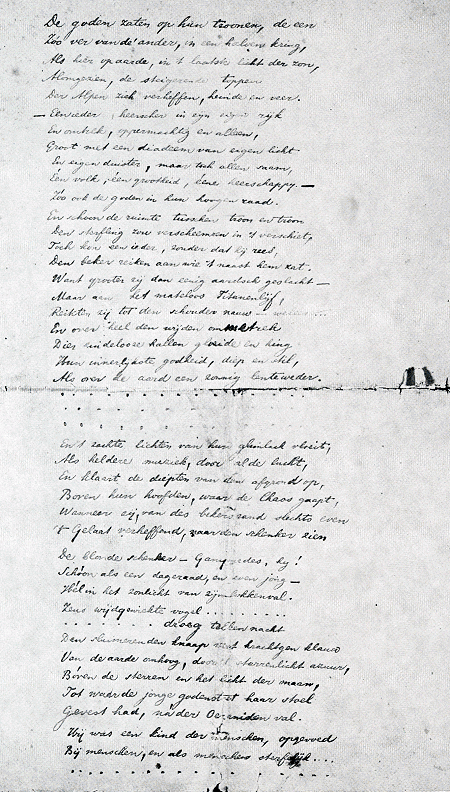 De goden zaten op hun troonen, de een
Zóó ver van de' ander, in een halven kring,
Als hier op aarde, in 't laatste licht der zon,
Alomgezien, de steigerende toppen
Der Alpen zich verheffen, heinde en veer.
— Een ieder, heerscher in zijn eigen rijk
En omtrek, oppermachtig en alleen,
Groot met een diadeem van eigen licht
En eigen duister, maar toch allen saam,
Één volk, ééne grootheid, ééne heerschappij. —
Zóó ook de goden in hun hoogen raad.
En schoon de ruimte tusschen troon en troon
Den sterfling zou verscheemren in 't verschiet,
Toch kon een ieder, zonder dat hij rees,
Den beker reiken aan wie 't naast hem zat.
Want grooter zij dan eenig aardsch geslacht —
Maar aan het mateloos Titanenlijf,
Reikten zij tot den schouder nauw
En over heel den wijden ommetrek
Dier eindelooze hallen gleide en hing
Hun innerlijkste godheid, diep en stil,
Als over de aard een zonnig lenteweder.
En 't zachte lichten van hun glimlach vloeit,
Als heldere muziek, door al de lucht,
En klaart de diepten van den afgrond op,
Boven hun hoofden, waar de Chaos gaapt,
Wanneer zij, van des bekers rand slechts even
't Gelaat verheffend, naar den schenker zien
De blonde schenker — Ganymedes, hij!
Schóon als een dageraad, en even jong —
Hél in het zonlicht van zijn lokkenval.
Zeus wijdgewiekte vogel . . . . . . . . . .
. . . . . . . . . . droeg te lben nacht
Den sluimerenden knaap met krachtgen klauw
Van de aarde omhoog, door 't sterrenlicht
Bóven de sterren en het licht der maan,
Tot waar de jonge godenstoet haar stoel
Gevest had, ná der Oermiden val.
Hij was een kind der menschen, opgevoed
Bij menschen, en als menschen sterflijk....